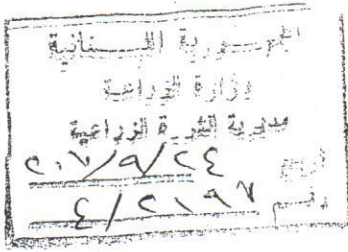 الجمهورية اللبنانية
وزارة الزراعة
مديرية الثروة الزراعية
٢٠٧/٩/٢٤
رقم ٤/٢١٩٧